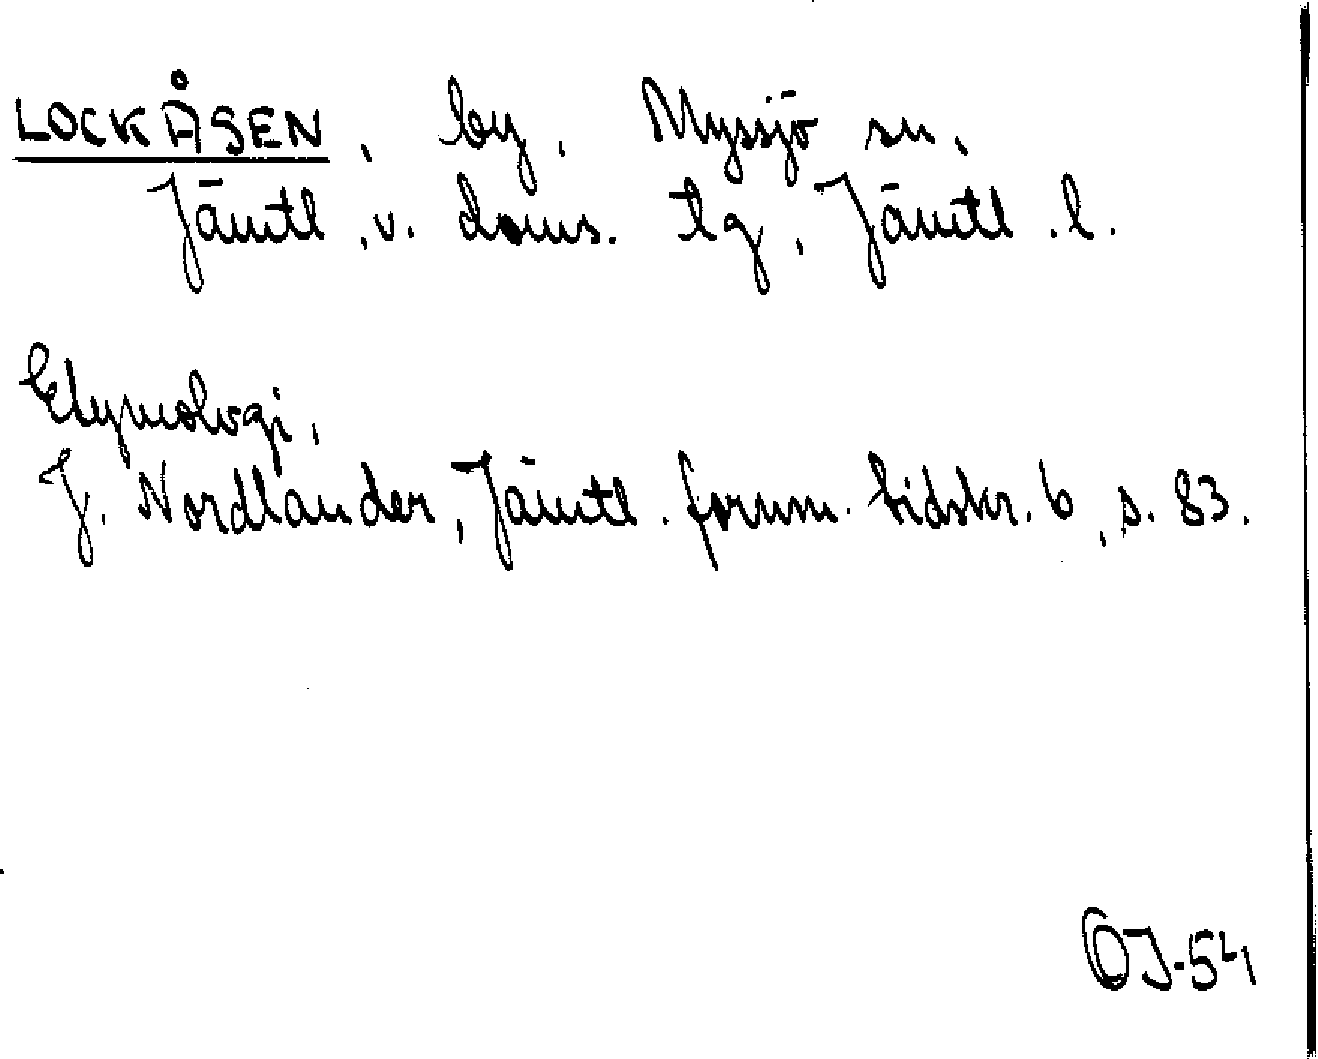 LOCKÅSEN, by, Myssjö sn,
Jämtl. v. doms. tg, Jämtl. l.
Etymologi,
J. Nordlander, Jämtl. fornm. tidskr. 6, s. 83.
OJ-54